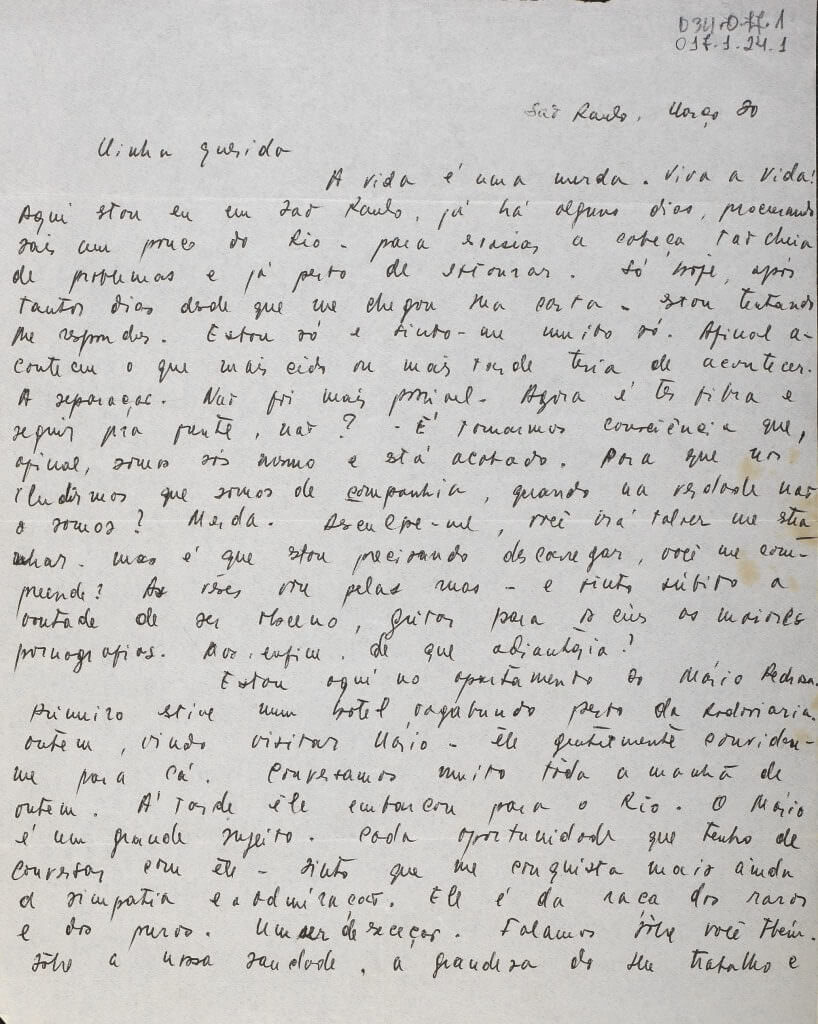 017.1.24.1
São Paulo, Março 20
Minha querida
A vida é uma merda. Viva a vida!
Aqui stou eu em São Paulo, já há alguns dias, procurando
sair um pouco do Rio - para a cabeça tão cheia
de problemas e já perto de estourar. Só hoje, após
tantos dias desde que me chegou sua carta - stou tentando
lhe responder. Estou só e sinto-me muito só. Afinal a-
conteceu o que mais cedo ou mais tarde teria de acontecer.
A separação. Não foi mais possível. Agora é ter fibra e
seguir pra frente, não? - É tomarmos consciência que,
afinal, somos sós mesmo e está acabado. Para que nos
iludirmos que somos de companhia, quando na verdade não
o somos? Merda. Desculpe-me, você irá talvez me stra
nhar. mas é que stou precisando descarregar, você me com-
preende? As vêses vou pelas ruas - e sinto súbito a
vontade de ser obceno, gritar para os céus as maiores
pornografias. Mas, enfim, de que adiantaria?
Estou aqui no apartamento do Mário Pedrosa.
Primeiro stive num hotel vagabundo perto da Rodoviaria.
ontem, vindo visitar Mario - êle gentilmente convidou-
me para cá. Conversamos muito tôda a manhã de
ontem. À tarde êle embarcou para o Rio. O Mário
é um grande sujeito. Cada oportunidade que tenho de
conversar com êle - sinto que me conquista mais ainda
a simpatia e a admiração. Ele é da raça dos raros
e dos puros. Um ser de exceção. Falamos sôbre você tbém.
sôbre a nossa saudade, a grandesa do seu trabalho e